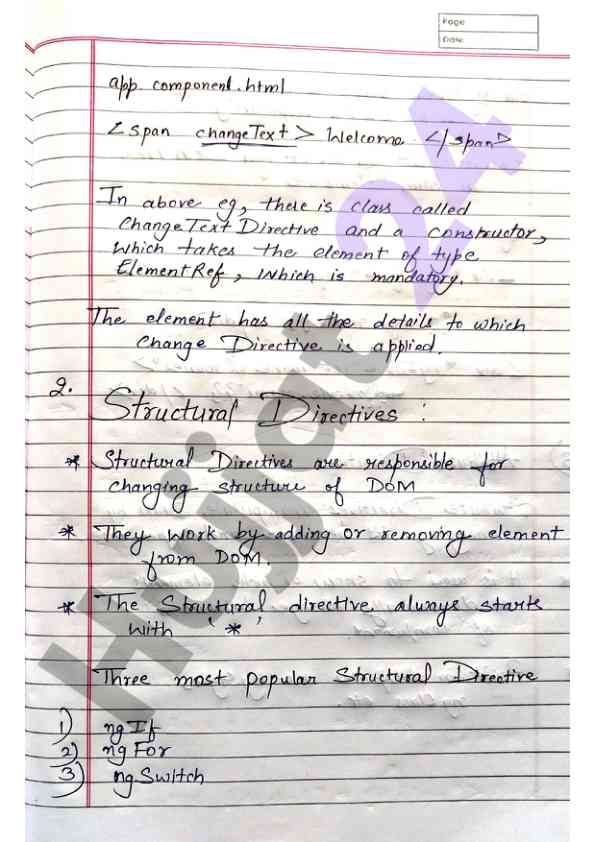 Page
Date
app. component.html
<span changeText> Welcome </span>
In above eg, there is class called
ChangeText Directive and a constructor,
which takes the element of type
ElementRef, which is mandatory.
The element has all the details to which
Change Directive is applied.
2.
Structural Directives :
* Structural Directives are responsible for
changing structure of DOM
* They work by adding or removing element
from DOM.
* The Structural directive always starts
with '*'
Three most popular Structural Directive
1) ng If
2) ng For
3) ng Switch
Hujjat 24